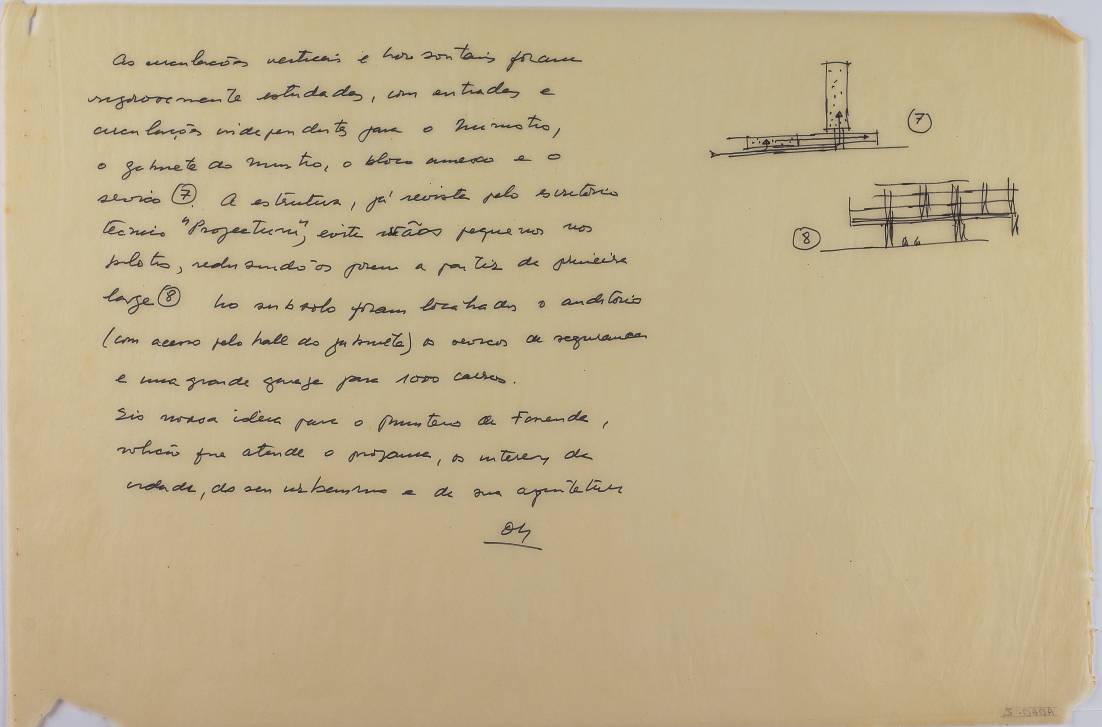 As circulações verticais e horisontais foram
rigorosamente estudadas, com entradas e
circulações independentes para o Ministro,
o gabinete do Ministro, o bloco anexo e o
serviço (7). A estrutura, já revista pelo escritório
tecnico "Projectum", evita vãos pequenos nos
pilotis, redusindo-os porem a partir da primeira
large (8) No subsolo foram localizados o auditório
(com acesso pelo hall do gabinete) os serviços de segurança
e uma grande garage para 1000 carros.
Eis nossa ideia para o Ministerio da Fazenda,
solução que atende o programa, os interesses da
cidade, do seu urbanismo e de sua arquitetura
ON
7
8